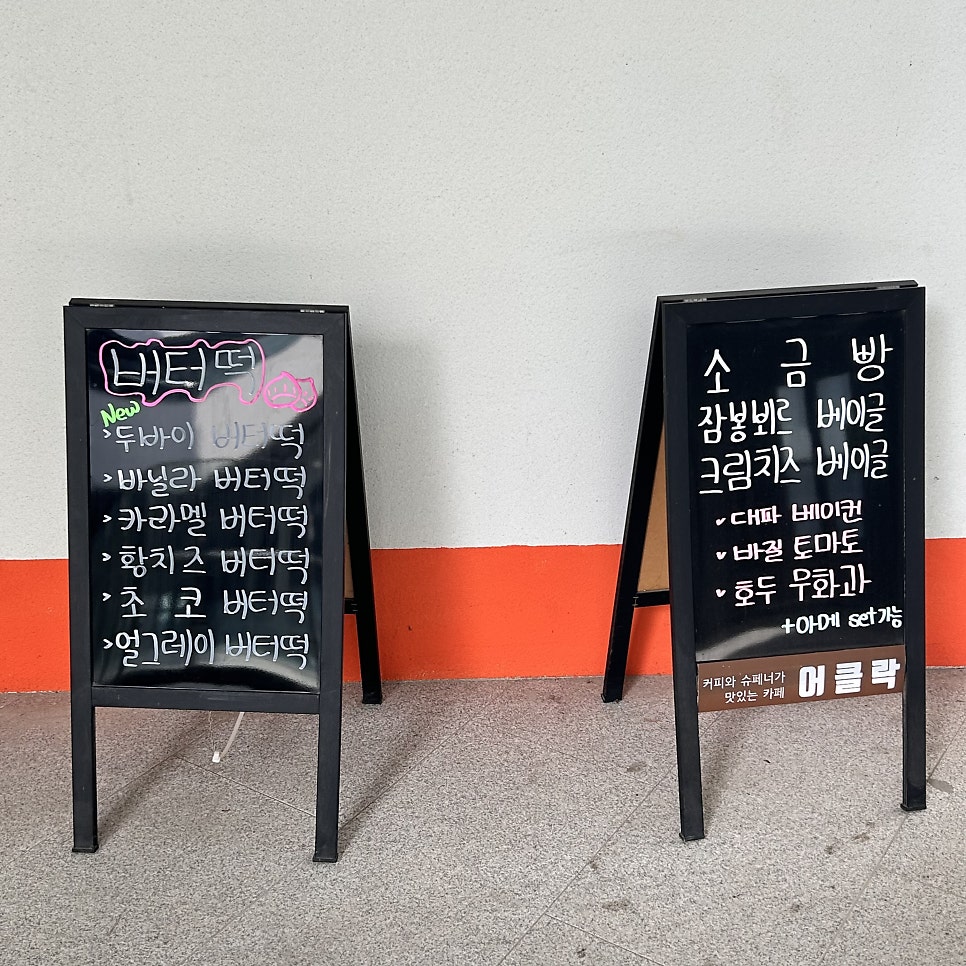 버터떡
New
>두바이 버터떡
>바닐라 버터떡
>카라멜 버터떡
>황치즈 버터떡
>초코 버터떡
>얼그레이 버터떡
소금빵
잠봉뵈르 베이글
크림치즈 베이글
대파 베이컨
바질 토마토
호두 무화과
+아메 set가능
커피와 슈페너가
맛있는 카페
어클락